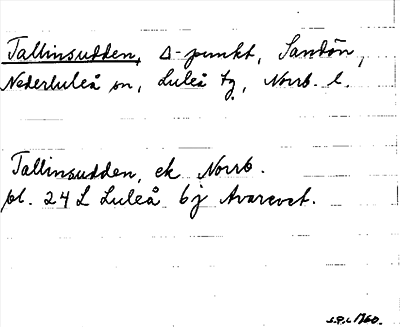 Tallinsudden, Δ-punkt, Sandön,
Nederluleå sn, Luleå tg, Norrb. l.
Tallinsudden, ek Norrb.
pl. 24 L Luleå 6j Avarevet.
S.P.L. 1960.